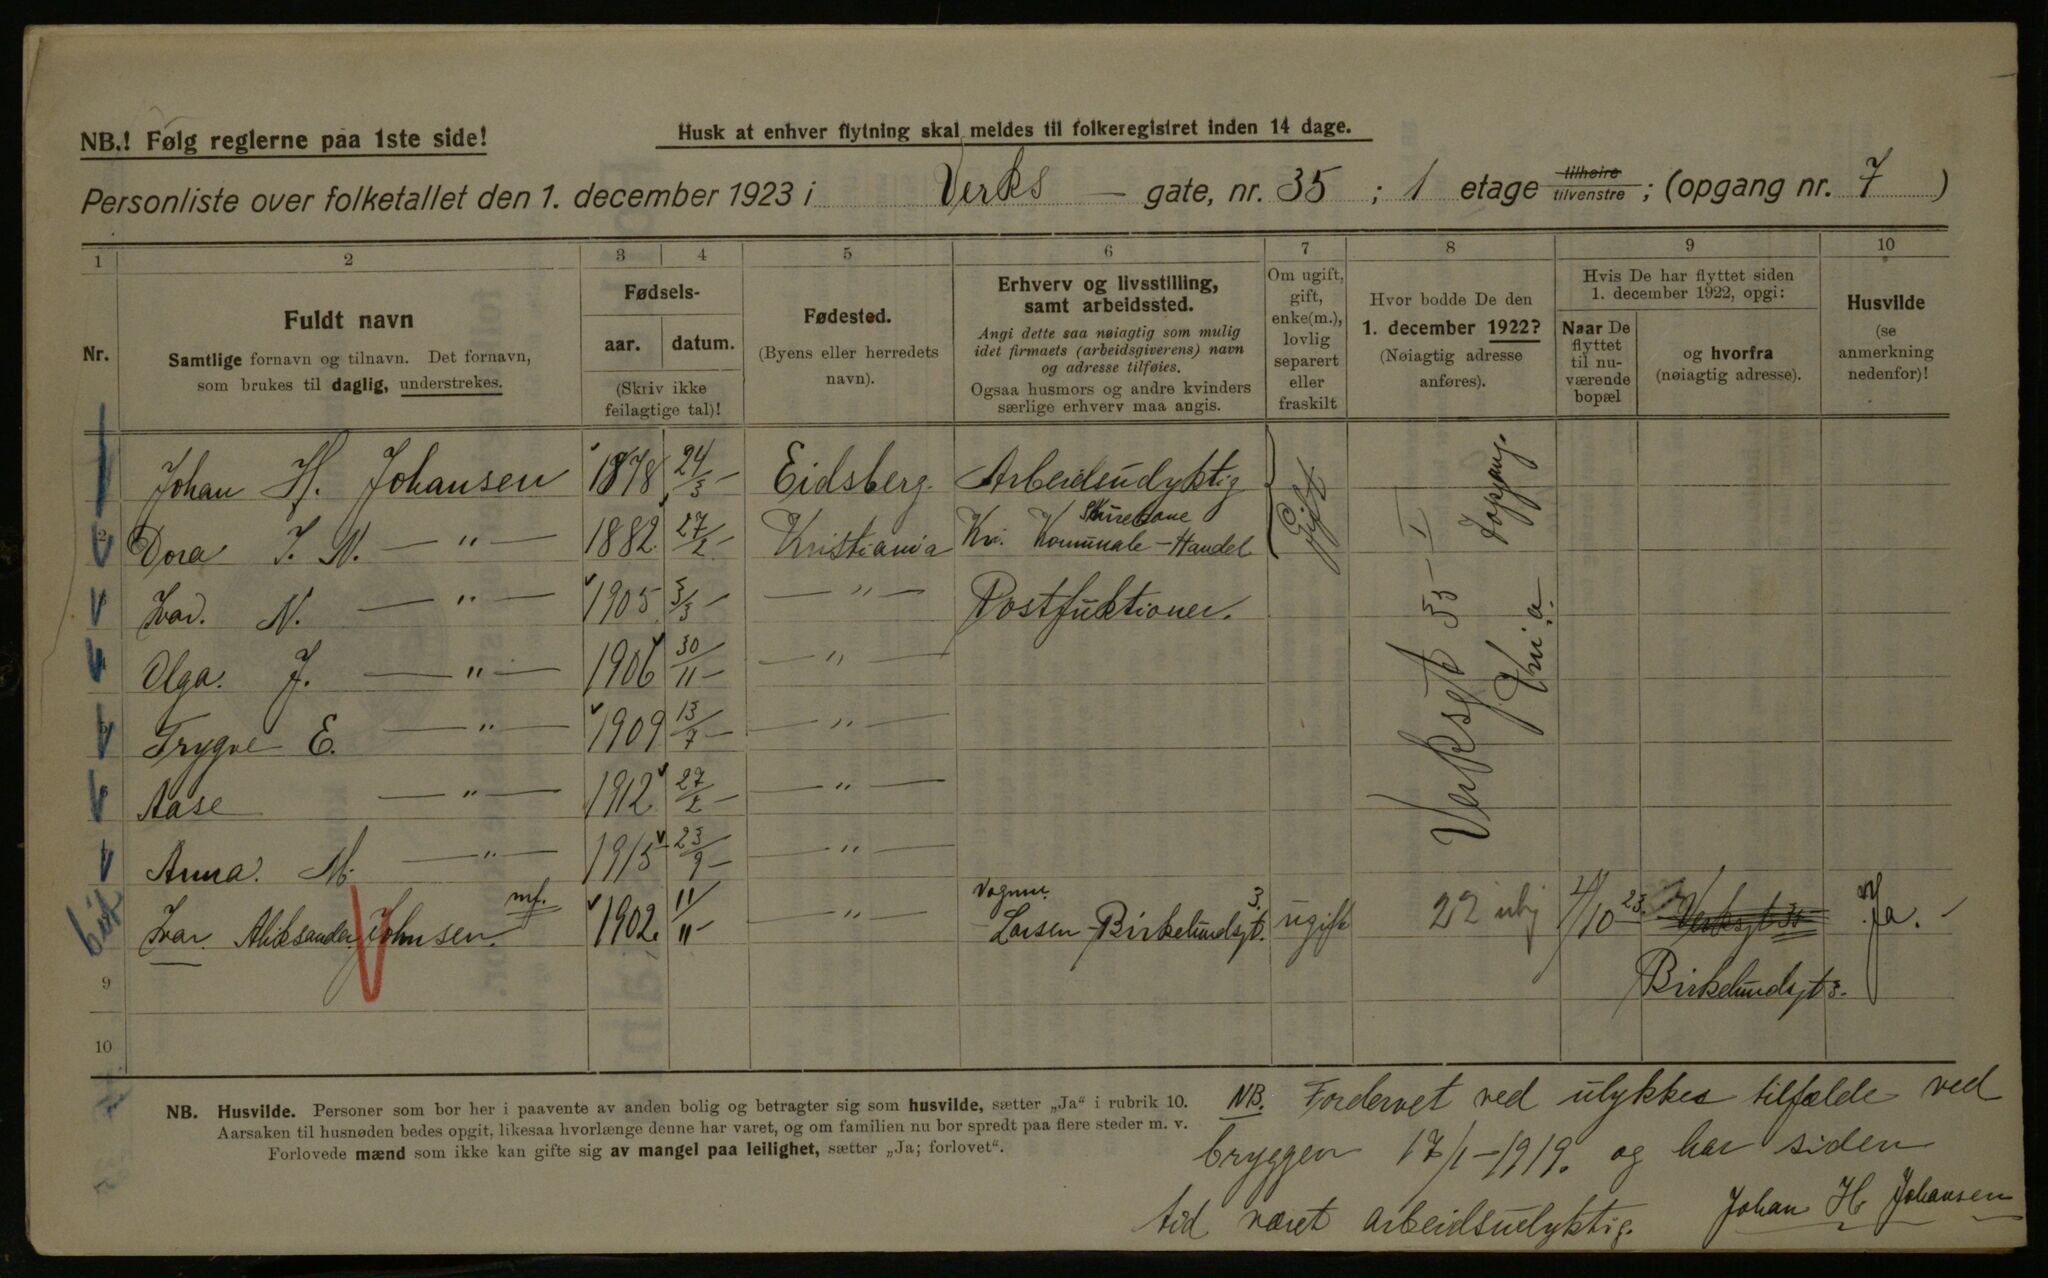 NB.! Følg reglerne paa 1ste side!
Husk at enhver flytning skal meldes til folkeregistret inden 14 dage.
Personliste over folketallet den 1. december 1923 i Verks — gate, nr. 35 ; 1 etage tilhøire tilvenstre ; (opgang nr. 7 )
1 2 3 4 5 6 7 8 9 10
Nr.
Fuldt navn
Samtlige fornavn og tilnavn. Det fornavn,
som brukes til daglig, understrekes.
Fødsels-
aar. datum.
(Skriv ikke
feilagtige tal)!
Fødested.
(Byens eller herredets
navn).
Erhverv og livsstilling,
samt arbeidssted.
Angi dette saa nøiagtig som mulig
idet firmaets (arbeidsgiverens) navn
og adresse tilføies.
Ogsaa husmors og andre kvinders
særlige erhverv maa angis.
Om ugift,
gift,
enke(m.),
lovlig
separert
eller
fraskilt
Hvor bodde De den
1. december 1922?
(Nøiagtig adresse
anføres).
Hvis De har flyttet siden
1. december 1922, opgi:
Naar De
flyttet
til nu-
værende
bopæl
og hvorfra
(nøiagtig adresse).
Husvilde
(se
anmerkning
nedenfor)!
Johan H. Johansen 1878 24/3 — Eidsberg. Arbeidsudyktig Gift Verksgt 35 - I 7 opgang. Kria.
2 Dora J. N. — " — 1882. 27/2 — Kristiania Kr. Komunale - Handel
Ivar. N. — " — 1905 3/3 — — " — Postfuktioner.
Olga. J. — " — 1906 30/11 — — " —
Trygve E. — " — 1909 13/7 — — " —
Aase — " — 1912 27/2 — — " —
Anna. M. — " — 1915 23/9 — — " —
Ivar Aleksander Johnsen. mf. 1902. 11/11 — " — Larsen - Birkelundsgt. 3. ugift 22 /10 23. Verksgt 35 Ja.
9 Birkelundsgt 3.
10
NB. Husvilde. Personer som bor her i paavente av anden bolig og betragter sig som husvilde, sætter „Ja“ i rubrik 10.
Aarsaken til husnøden bedes opgit, likesaa hvorlænge denne har varet, og om familien nu bor spredt paa flere steder m. v.
Forlovede mænd som ikke kan gifte sig av mangel paa leilighet, sætter „Ja; forlovet“.
NB. Fordervet ved ulykkes tilfælde ved
bryggen 17/1-1919. og har siden
tid været arbeidsudyktig. Johan H Johansen